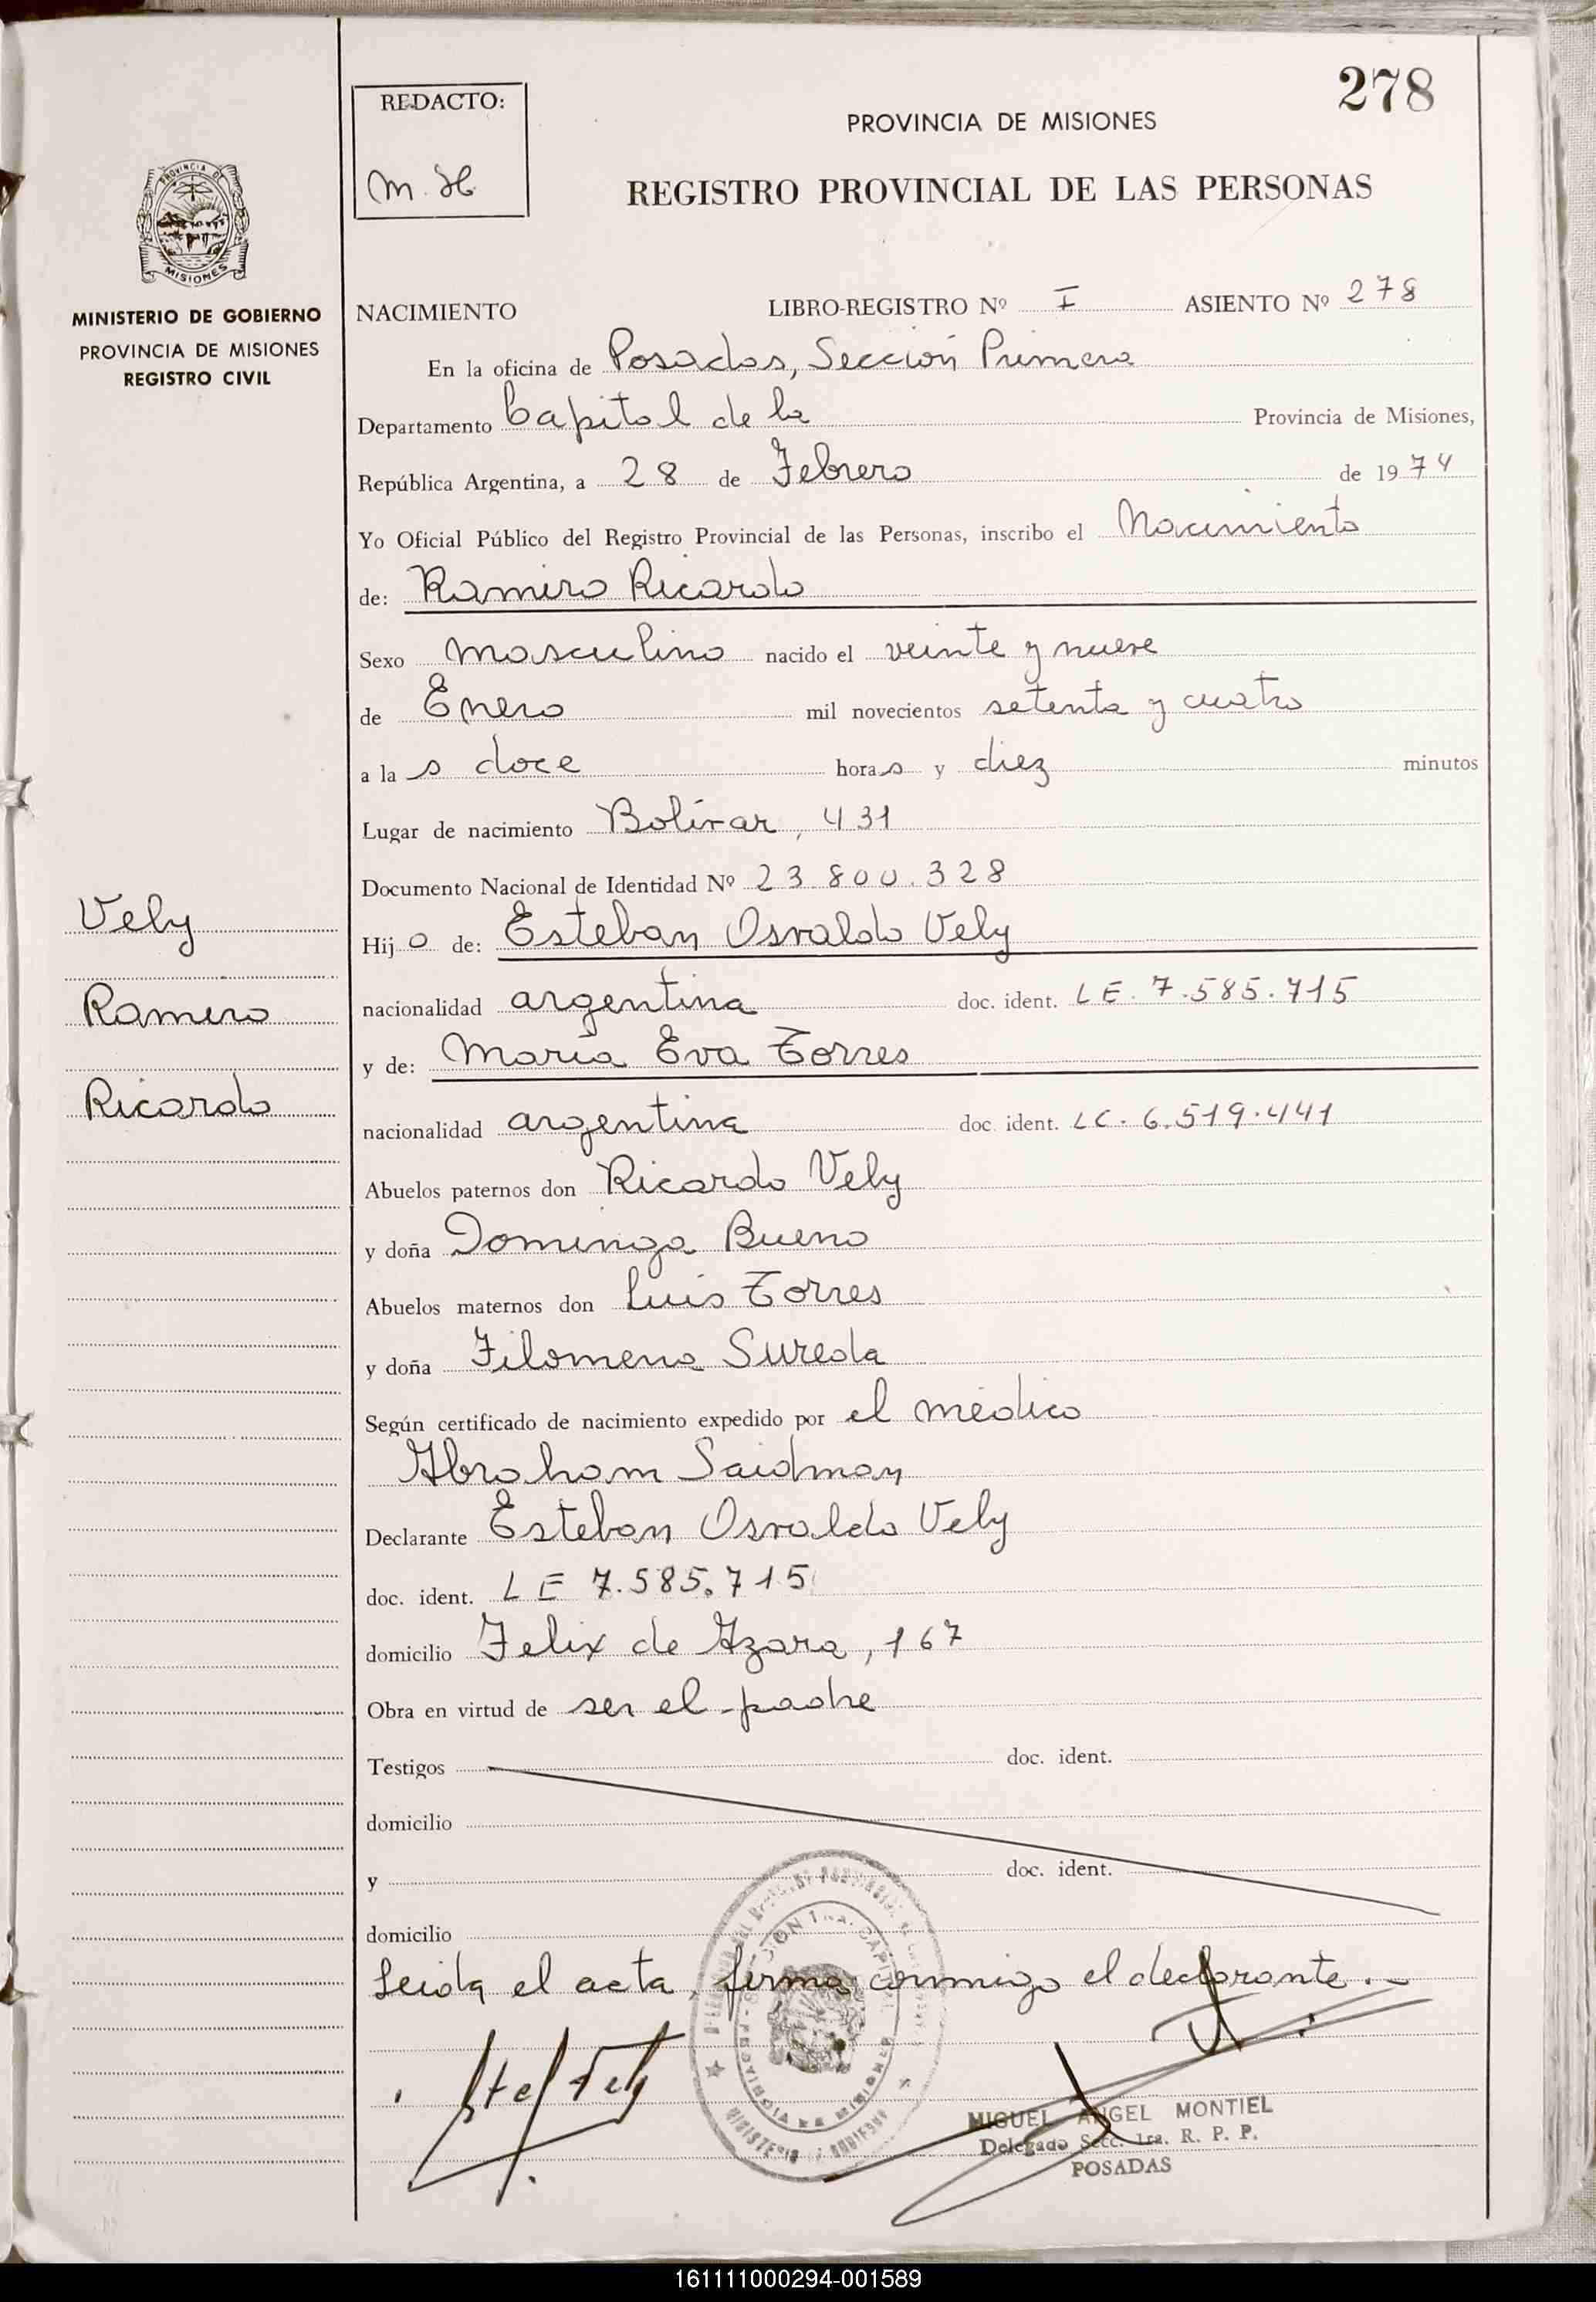 278
REDACTO:
M. H.
PROVINCIA DE MISIONES
REGISTRO PROVINCIAL DE LAS PERSONAS
PROVINCIA DE
MISIONES
MINISTERIO DE GOBIERNO
PROVINCIA DE MISIONES
REGISTRO CIVIL
NACIMIENTO LIBRO-REGISTRO Nº I ASIENTO Nº 278
En la oficina de Posadas, Sección Primera
Departamento Capital de la Provincia de Misiones,
República Argentina, a 28 de Febrero de 1974
Yo Oficial Público del Registro Provincial de las Personas, inscribo el Nacimiento
de: Ramiro Ricardo
Sexo masculino nacido el veinte y nueve
de Enero mil novecientos setenta y cuatro
a la s doce horas y diez minutos
Lugar de nacimiento Bolívar, 431
Documento Nacional de Identidad Nº 23.800.328
Vely
Hijo de: Esteban Osvaldo Vely
nacionalidad argentina doc. ident. LE. 7.585.715
Ramiro
y de: María Eva Torres
Ricardo
nacionalidad argentina doc. ident. LC. 6.519.441
Abuelos paternos don Ricardo Vely
y doña Dominga Bueno
Abuelos maternos don Luis Torres
y doña Filomena Sureda
Según certificado de nacimiento expedido por el médico
Abraham Saidman
Declarante Esteban Osvaldo Vely
doc. ident. LE 7.585.715
domicilio Felix de Azara, 167
Obra en virtud de ser el padre
Testigos doc. ident.
domicilio
y doc. ident.
domicilio
Leida el acta, firma conmigo el declarante.-
MIGUEL ANGEL MONTIEL
Delegado Secc. 1ra. R. P. P.
POSADAS
161111000294-001589